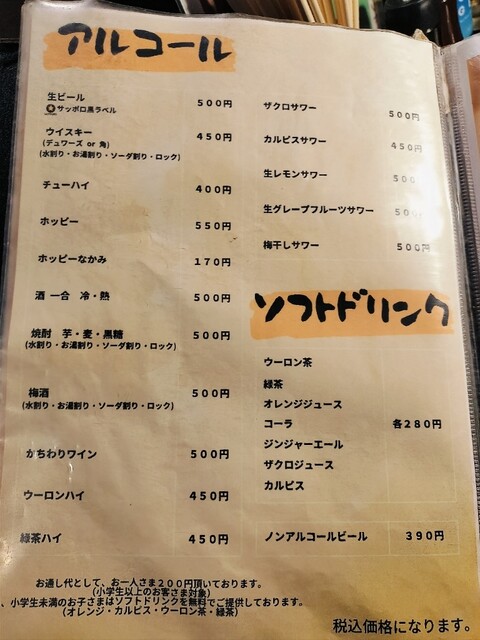 アルコール
生ビール 500円
サッポロ黒ラベル
ウイスキー 450円
(デュワーズ or 角)
(水割り・お湯割り・ソーダ割り・ロック)
チューハイ 400円
ホッピー 550円
ホッピーなかみ 170円
酒 一合 冷・熱 500円
焼酎 芋・麦・黒糖 500円
(水割り・お湯割り・ソーダ割り・ロック)
梅酒 500円
(水割り・お湯割り・ソーダ割り・ロック)
かちわりワイン 500円
ウーロンハイ 450円
緑茶ハイ 450円
ザクロサワー 500円
カルピスサワー 450円
生レモンサワー 500
生グレープフルーツサワー 500
梅干しサワー 500円
ソフトドリンク
ウーロン茶
緑茶
オレンジジュース
コーラ 各280円
ジンジャーエール
ザクロジュース
カルピス
ノンアルコールビール 390円
お通し代として、お一人さま200円頂いております。
(小学生以上のお客さま対象)
、小学生未満のお子さまはソフトドリンクを無料でご提供しております。
(オレンジ・カルピス・ウーロン茶・緑茶)
税込価格になります。